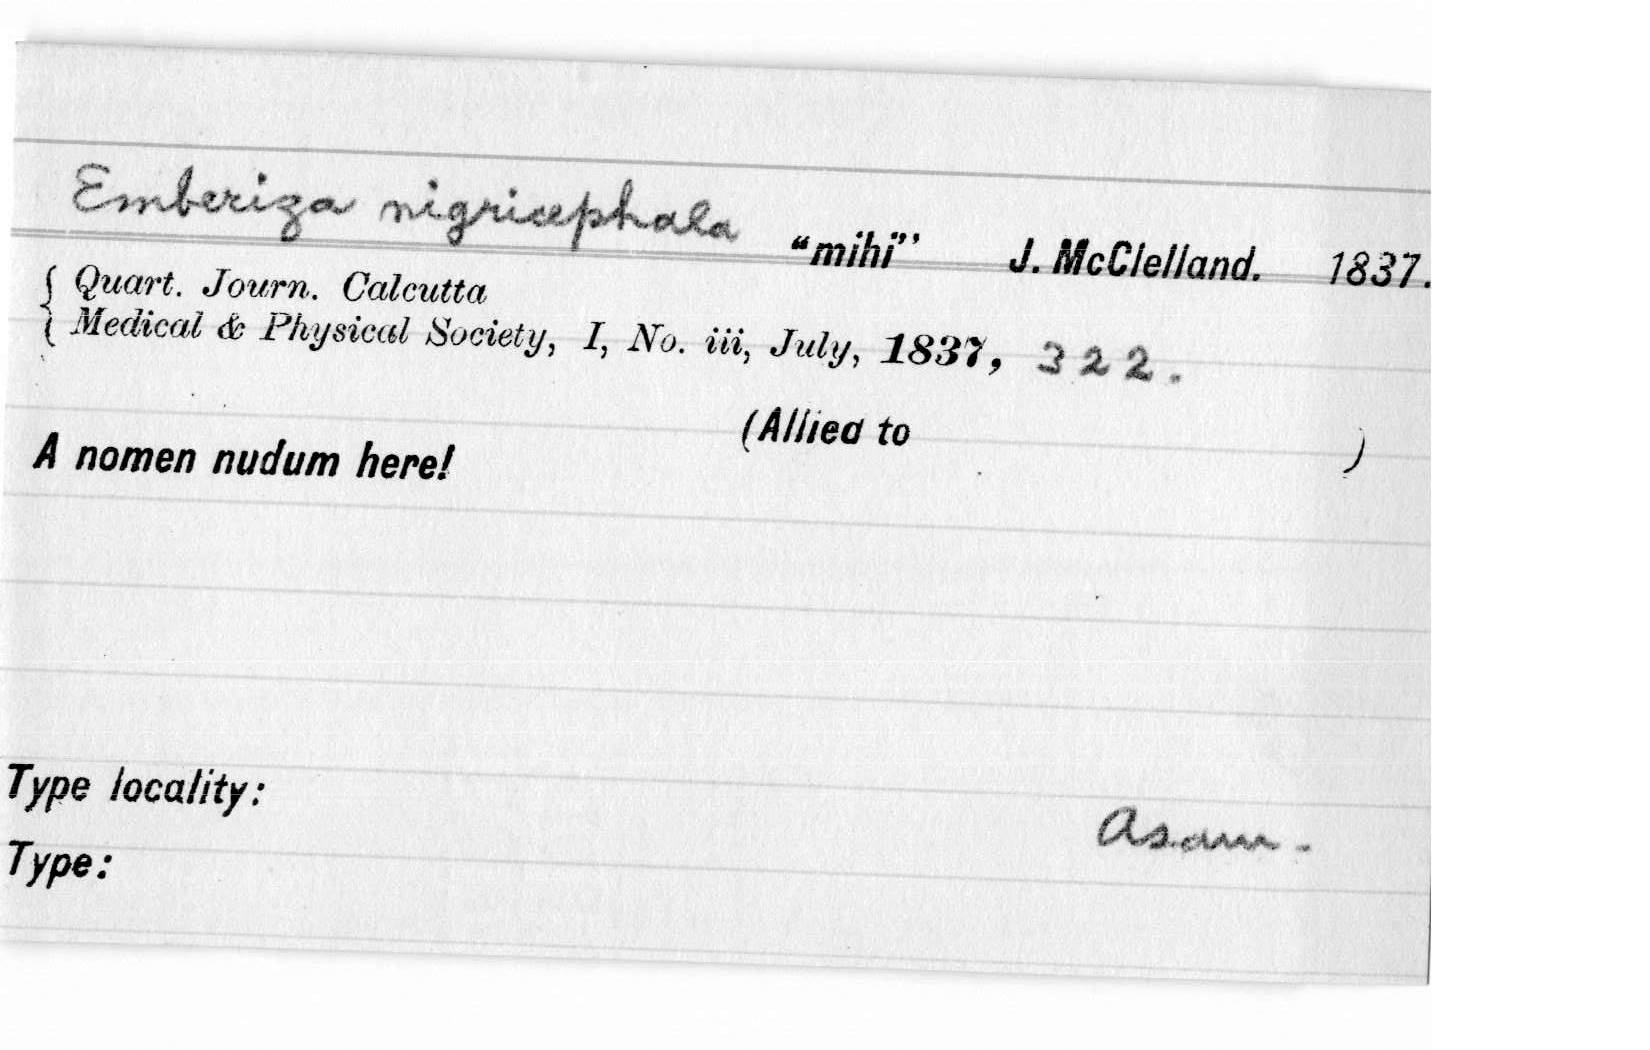 Emberiza nigricephala “mihi” J. McClelland. 1837.
{ Quart. Journ. Calcutta
{ Medical & Physical Society, I, No. iii, July, 1837, 322.
(Allied to )
A nomen nudum here!
Type locality: Asam.
Type: